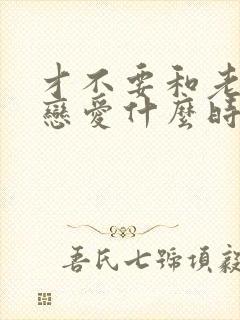 才不要和老
戀愛什麼時
吾氏七號項毅